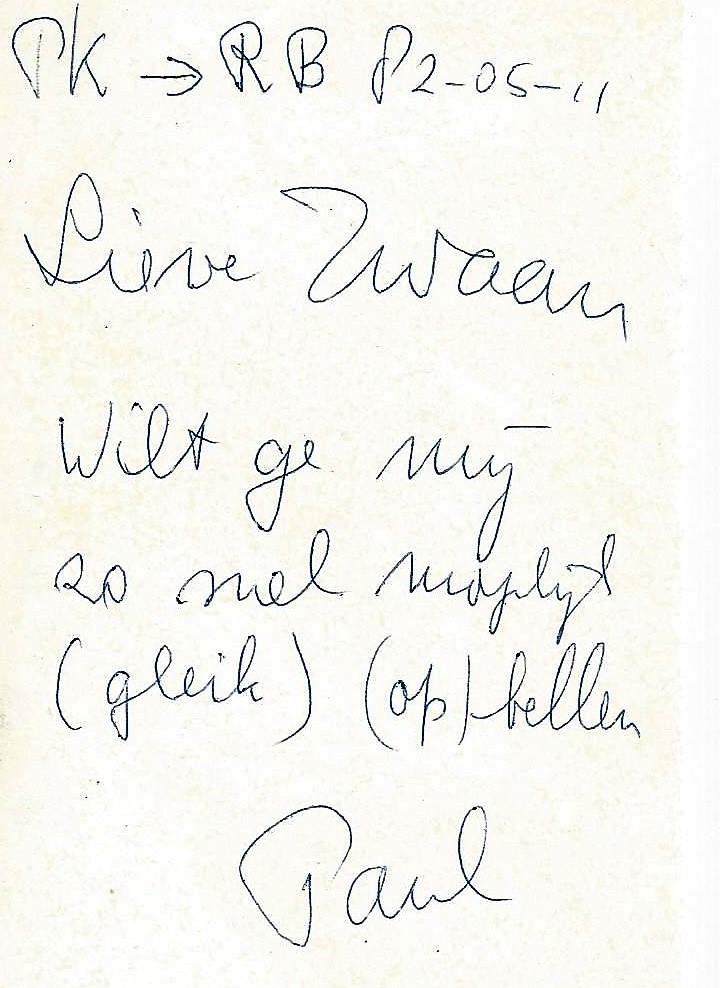 PK → RB 82-05-11
Lieve Zwaan
Wilt ge mij
zo snel mogelijk
(gleik) (op)-bellen
Paul